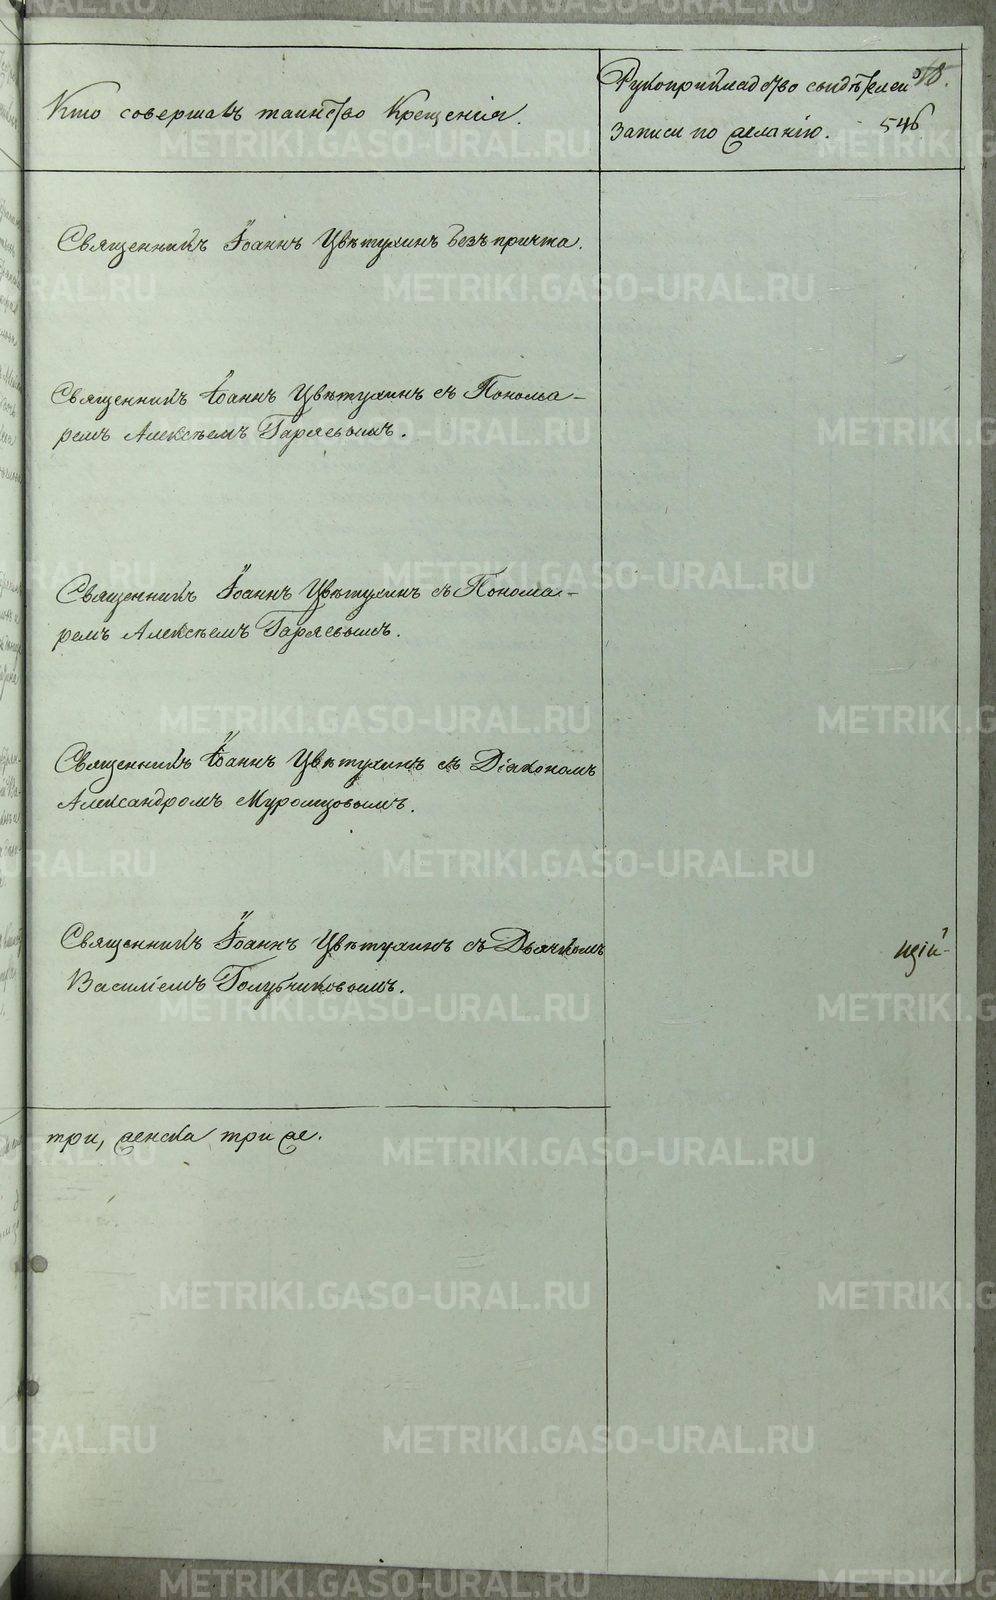 Кто совершалъ таинство Крещенія.
Рукоприкладство свидѣтелей
записи по желанію.
546
Священникъ Іоаннъ Цвѣтухинъ безъ причта.
Священникъ Іоаннъ Цвѣтухинъ съ Понома-
ремъ Алексѣемъ Гаряевымъ.
Священникъ Іоаннъ Цвѣтухинъ съ Понома-
ремъ Алексѣемъ Гаряевымъ.
Священникъ Іоаннъ Цвѣтухинъ съ Діакономъ
Александромъ Муромцовымъ.
Священникъ Іоаннъ Цвѣтухинъ съ Дьячкомъ
Василіемъ Голубчиковымъ.
три, женска три же.
METRIKI.GASO-URAL.RU